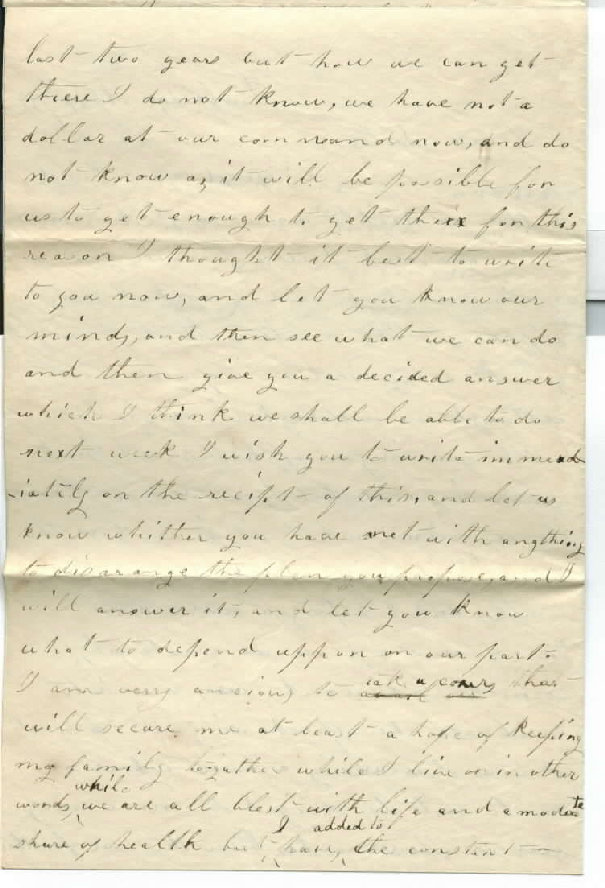 last two years but how we can get
there I do not know, we have not a
dollar at our command now, and do
not know as it will be possible for
us to get enough to get there for this
reason I thought it best to write
to you now, and let you know our
minds, and then see what we can do
and then give you a decided answer
which I think we shall be able to do
next week I wish you to write immead
iately on the recipt of this, and let us
know whither you have met with anything
to disarange the plan you propose, and I
will answer it, and let you know
what to depend uppon on our part.
I am very anxious to tak a cours that
will secure me at least a hope of keeping
my family together while I live or in other
words, while we are all blest with life and a moderate
share of health but I have, added to, the constant